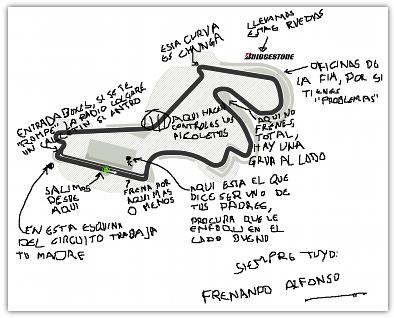 LLEVAMOS
ESTAS RUEDAS
BRIDGESTONE
ESTA CURVA
ES CHUNGA
OFICINAS DE
LA FIA, POR SI
TIENES
"PROBLEMAS"
ENTRADA BOXES, SI SE TE
ROMPE LA RADIO COLGARE
UN EN SI ANTRO
AQUI HACEN
CONTROLES LOS
PICOLETOS
AQUI NO
FRENES
TOTAL,
HAY UNA
GRUA AL LADO
SALIMOS
DESDE
AQUI
FRENA POR
AQUI MAS
O MENOS
AQUI ESTA EL QUE
DICE SER UNO DE
TUS PADRES,
PROCURA QUE LE
ENFOQUEN EN EL
LADO BUENO
EN ESTA ESQUINA
DEL CIRCUITO TRABAJA
TU MADRE
SIEMPRE TUYO:
FRENANDO ALFONSO